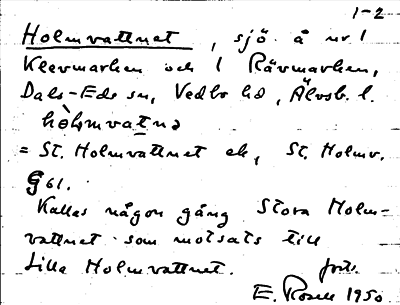 1-2
Holmvattnet, sjö å nr 1
Klevmarken och 1 Rävmarken,
Dals-Eds sn, Vedbo hd, Älvsb. l.
hòlmvatnə
= St. Holmvattnet ek, St. Holmv.
G 61.
Kallas någon gång Stora Holm-
vattnet som motsats till
Lilla Holmvattnet. forts.
E. Rosell 1950